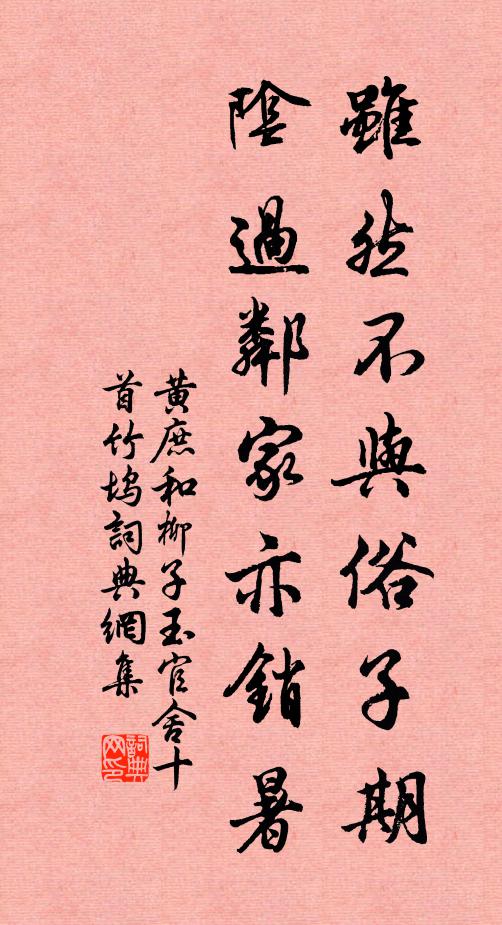 雖然不與俗子期
陰過鄰家亦銷暑
黃庶和柳子玉官舍十
首竹塢詞典網集
詞典
网印